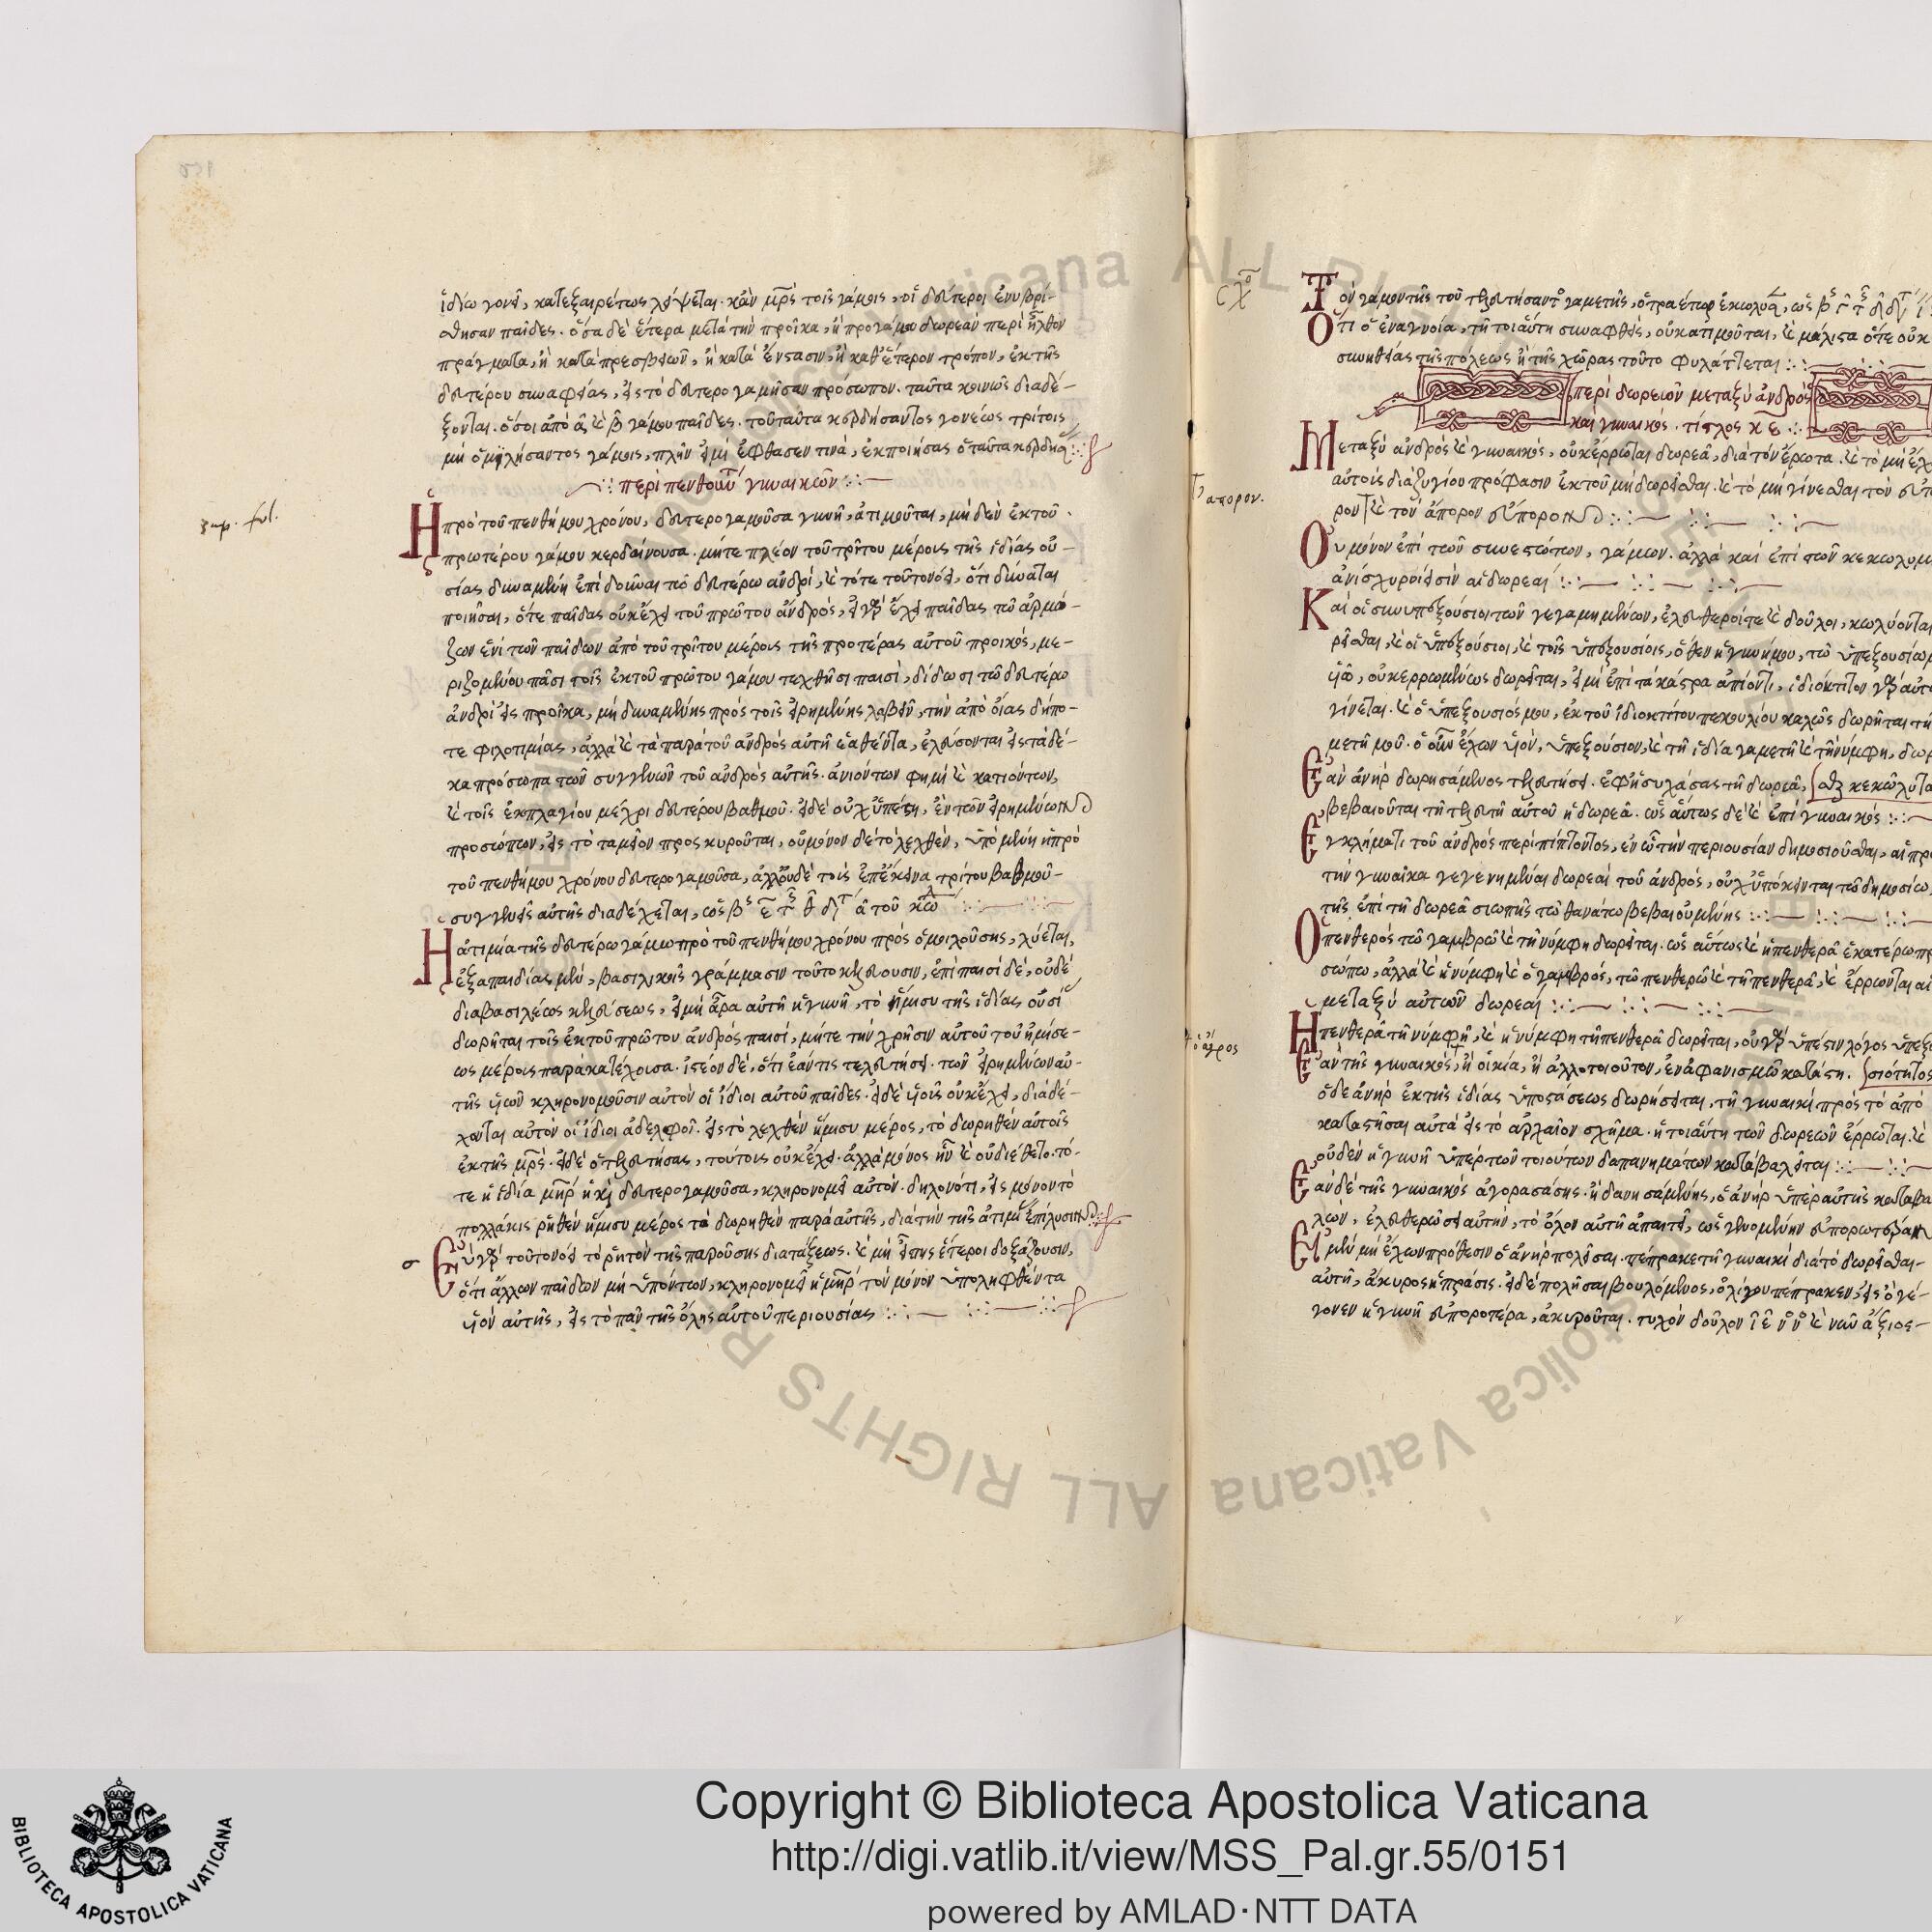 ἰδίω γονεῖ, κατεξαιρέτως λείψεται. κἂν μρὸς τοῖς γάμοις, οἱ δεύτεροι ἐνυβρί-
σθησαν παῖδες. ὅσα δὲ ἕτερα μετὰ τὴν προῖκα, ἢ προγάμου δωρεὰν περιῆλθον
πράγματα, ἢ κατὰ πρεσβεῖον, ἢ κατὰ ἔνστασιν, ἢ καθ' ἕτερον τρόπον, ἐκ τῆς
δευτέρου συναφείας, εἰς τὸ δευτερογαμῆσαν πρόσωπον. ταῦτα κοινῶς διαδέ-
ξονται. ὅσοι ἀπὸ α καὶ β γάμου παῖδες. τοῦ ταῦτα κερδήσαντος γονέως τρίτοις
μὴ ὁμιλήσαντος γάμοις, πλὴν εἰ μὴ ἔφθασέν τινα, ἐκποιήσας ὁ ταῦτα κερδήσας
περὶ πενθουσῶν γυναικῶν
Ἡ πρὸ τοῦ πενθήμου χρόνου, δευτερογαμοῦσα γυνὴ, ἀτιμοῦται, μηδὲν ἐκ τοῦ
πρωτέρου γάμου κερδαίνουσα. μήτε πλέον τοῦ τρίτου μέρους τῆς ἰδίας οὐ-
σίας δυναμένη ἐπιδοῦναι τῶ δευτέρω ἀνδρὶ, καὶ τότε τοῦτο νόει, ὅτι δύναται
ποιῆσαι, ὅτε παῖδας οὐκ ἔχει τοῦ πρώτου ἀνδρός, εἰ γὰρ ἔχει παῖδας τῶ ἁρμό-
ζων ἑνὶ τῶν παίδων ἀπὸ τοῦ τρίτου μέρους τῆς προτέρας αὐτοῦ προικός, με-
ριζομένου πᾶσι τοῖς ἐκ τοῦ πρώτου γάμου τεχθεῖσι παισὶ, δίδωσι τῶ δευτέρω
ἀνδρὶ εἰς προῖκα, μὴ δυναμένης πρὸς τοῖς εἰρημένης λαβεῖν, τὴν ἀπὸ οἵας δήπο-
τε φιλοτιμίας, ἀλλὰ καὶ τὰ παρὰ τοῦ ἀνδρὸς αὐτῆ ἐαθέντα, ἐλεύσονται εἰς τὰ δέ-
κα πρόσωπα τῶν συγγενῶν τοῦ ἀνδρὸς αὐτῆς. ἀνιόντων φημὶ καὶ κατιόντων,
καὶ τοῖς ἐκ πλαγίου μέχρι δευτέρου βαθμοῦ. εἰ δὲ οὐχ ὕπεστη, ἐν τῶν εἰρημένων
προσώπων, εἰς τὸ ταμεῖον προσκυροῦται, οὐ μόνον δὲ τὸ λεχθὲν, ὑπομένη ἡ πρὸ
τοῦ πενθήμου χρόνου δευτερογαμοῦσα, ἀλλ' οὐδὲ τοῖς ἐπέκεινα τρίτου βαθμοῦ-
συγγενεῖς αὐτῆς διαδέχεται,
Ἡ ἀτιμία τῆς δευτέρω γάμω πρὸ τοῦ πενθήμου χρόνου πρὸς ὁμιλούσης, λύεται,
ἐξ ἀπαιδίας μὲν, βασιλικοῖς γράμμασιν τοῦτο κελεύουσιν, ἐπὶ παισὶ δὲ, οὐδὲ
διὰ βασιλέως κελεύσεως, εἰ μὴ ἄρα αὐτὴ ἡ γυνὴ, τὸ ἥμισυ τῆς ἰδίας οὐσίας
δωρῆται τοῖς ἐκ τοῦ πρώτου ἀνδρὸς παισὶ, μήτε τὴν χρῆσιν αὐτοῦ τοῦ ἡμίσε-
ως μέρους παρακατέχουσα. ἰστέον δὲ, ὅτι ἐάν τις τελευτήσει. τῶν εἰρημένων αὐ-
τῆς υἱῶν κληρονομοῦσιν αὐτὸν οἱ ἴδιοι αὐτοῦ παῖδες. εἰ δὲ υἱοὺς οὐκ ἔχει, διαδέ-
χονται αὐτὸν οἱ ἴδιοι ἀδελφοῦ. εἰς τὸ λεχθὲν ἥμισυ μέρος, τὸ δωρηθὲν αὐτοῖς
ἐκ τῆς μρὸς. εἰ δὲ ὁ τελευτήσας, τούτοις οὐκ ἔχει. ἀλλὰ μόνος ἦν καὶ οὐ διέθετο. τό-
τε ἡ ἰδία μηρ ἡ καὶ δευτερογαμοῦσα, κληρονομεῖ αὐτόν. δηλονότι, εἰς μόνον τὸ
πολλάκις ῥηθὲν ἥμισυ μέρος τὸ δωρηθὲν παρὰ αὐτῆς, διὰ τὴν τῆς ἀτιμίας ἐπίλυσιν
Εὖ γὰρ τοῦτο νόει τὸ ῥητὸν τῆς παρούσης διατάξεως. καὶ μὴ εἴπης ἕτεροι δοξάζουσιν,
ὅτι ἄλλων παίδων μὴ ὑπόντων, κληρονομεῖ ἡ μηρ τὸν μόνον ὑποληφθέντα
υἱὸν αὐτῆς, εἰς τὸ πᾶν τῆς ὅλης αὐτοῦ περιουσίας
Τὸν γάμον τῆς τοῦ τελευτήσαντος γαμετῆς, ὁ τραέτωρ ἐκώλυσε,
Ὅτι ὁ ἐν ἀγνοία, τῆ τοιαύτη συναφθεὶς, οὐκ ἀτιμοῦται, καὶ μάλιστα ὅτε οὐκ
συνηθείας τῆς πόλεως ἢ τῆς χώρας τοῦτο φυλάττεται
περὶ δωρεῶν μεταξὺ ἀνδρὸς
καὶ γυναικός. τίτλος κε
Μεταξὺ ἀνδρὸς καὶ γυναικός, οὐκ ἔρρωται δωρεὰ, διὰ τὸν ἔρωτα. καὶ τὸ μὴ ἔχ
αὐτοὺς διαζυγίου πρόφασιν ἐκ τοῦ μὴ δωρεῖσθαι. καὶ τὸ μὴ γίνεσθαι τὸν εὔπο
ρον καὶ τὸν ἄπορον εὔπορον
ἄπορον.
Οὐ μόνον ἐπὶ τῶν συνεστώτων, γάμων. ἀλλὰ καὶ ἐπὶ τῶν κεκωλυμ
ἀνίσχυροί εἰσιν αἱ δωρεαί
Καὶ οἱ συνυπεξούσιοι τῶν γεγαμημένων, ἐλεύθεροί τε καὶ δοῦλοι, κωλύονται
ρεῖσθαι, καὶ οἱ ὑπεξούσιοι, καὶ τοῖς ὑπεξουσίοις, ὅθεν ἡ γυνή μου, τῶ ὑπεξουσίω μ
υἱῶ, οὐκ ἐρρωμένως δωρεῖται, εἰ μὴ ἐπὶ τὰ κάστρα ἀπίοντι, ἰδιόκτητον γὰρ αὐτο
γίνεται. καὶ ὁ ὑπεξούσιός μου, ἐκ τοῦ ἰδιοκτήτου πεκουλίου καλῶς δωρῆται τῆ
μετῆ μου. ὁ οὖν ἔχων υἱὸν, ὑπεξούσιον, καὶ τῆ ἰδία γαμετῆ καὶ τῆ νύμφη, δωρ
Ἐὰν ἀνὴρ δωρησάμενος τελευτήσει. ἐφησυχάσας τῆ δωρεᾶ,
βεβαιοῦται τῆ τελευτῆ αὐτοῦ ἡ δωρεά. ὡς αὕτως δὲ καὶ ἐπὶ γυναικός
Ἐγκλήματι τοῦ ἀνδρὸς περιπίπτοντος, ἐν ὧ τὴν περιουσίαν δημοσιοῦσθαι, αἱ πρὸ
τὴν γυναῖκα γεγενημέναι δωρεαὶ τοῦ ἀνδρός, οὐχ ὑπόκεινται τῶ δημοσίω,
τῆς ἐπὶ τῆ δωρεᾶ σιωπῆς τῶ θανάτω βεβαιουμένης
Ὁ πενθερὸς τῶ γαμβρῶ καὶ τῆ νύμφη δωρεῖται. ὡς αὕτως καὶ ἡ πενθερὰ ἑκατέρω πρ
σώπω, ἀλλὰ καὶ ἡ νύμφη καὶ ὁ γαμβρός, τῶ πενθερῶ καὶ τῆ πενθερᾶ, καὶ ἔρρωνται αἱ
μεταξὺ αὐτῶν δωρεαί
Ἡ πενθερὰ τῆ νύμφη, καὶ ἡ νύμφη τῆ πενθερᾶ δωρεῖται, οὐ γὰρ ὕπεστιν λόγος ὑπεξ
ὁ ἀγρος
Ἐὰν τῆς γυναικός, ἢ οἰκία, ἢ ἄλλο τοιοῦτον, ἐν ἀφανισμῶ καταστῆ.
ὁ δὲ ἀνὴρ ἐκ τῆς ἰδίας ὑποστάσεως δωρήσεται, τῆ γυναικὶ πρὸς τὸ ἀπο
καταστῆσαι αὐτὰ εἰς τὸ ἀρχαῖον σχῆμα. ἡ τοιαύτη τῶν δωρεῶν ἔρρωται. καὶ
οὐδὲν ἡ γυνὴ ὑπὲρ τῶν τοιούτων δαπανημάτων καταβαλεῖται
Ἐὰν δὲ τῆς γυναικὸς ἀγορασάσης. ἢ δανησαμένης, ὁ ἀνὴρ ὑπὲρ αὐτῆς καταβα
λὼν, ἐλευθερώσει αὐτὴν, τὸ ὅλον αὐτῆ ἀπαιτεῖ, ὡς γενομένην εὐπορωτέραν
Εἰ μὲν μὴ ἔχων πρόθεσιν ὁ ἀνὴρ πολῆσαι. πέπρακε τῆ γυναικὶ διὰ τὸ δωρεῖσθαι-
αὐτῆ, ἄκυρος ἡ πράσις. εἰ δὲ πολῆσαι βουλόμενος, ὀλίγου πέπρακεν, εἰς ὃ γέ-
γονεν ἡ γυνὴ εὐπορωτέρα, ἀκυροῦται. τυχὸν δοῦλον
Copyright © Biblioteca Apostolica Vaticana
http://digi.vatlib.it/view/MSS_Pal.gr.55/0151
powered by AMLAD·NTT DATA
BIBLIOTECA APOSTOLICA VATICANA